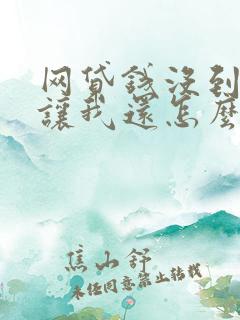 网贷钱没到
讓我還怎麽
焦山舒
未经同意禁止转载